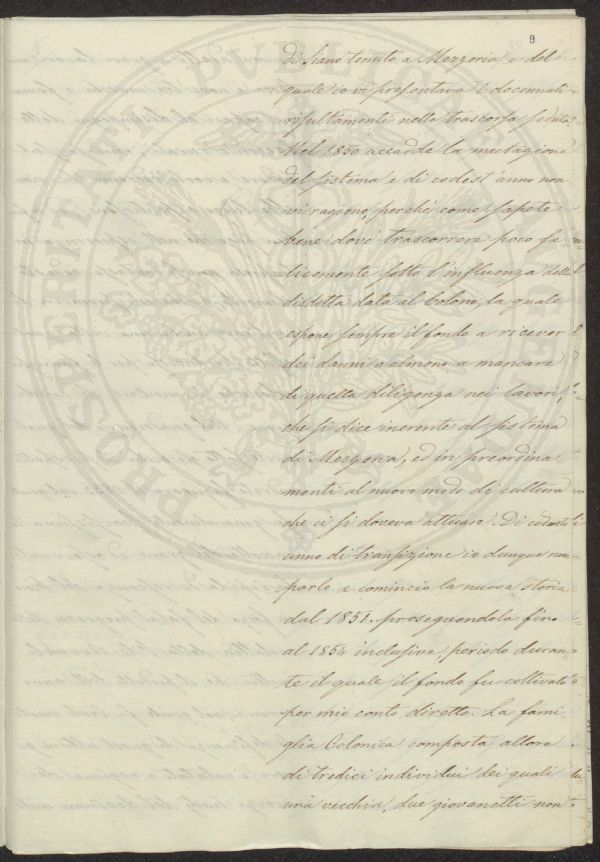 9
di siano tenuto a Mezzeria, e del
quale io vi presentava i decennali
risultamenti nella trascorsa seduta.
Nel 1850 accadde la mutazione
del sistima e di codest'anno non
vi ragiono, perché come sapete
bene dové trascorrere poco fe-
licemente sotto l'influenza della
disdetta data al Colono, la quale
espone sempre il fondo a ricever
dei danni o almeno a mancare
di quella diligenza nei lavori,
che si dice inerente al sistima
di Mezzeria, ed in preordina
menti al nuovo modo di cultura
che ci si doveva attuare. Di codesto
anno di transizione io dunque non
parlo e comincio la nuova storia
dal 1851. proseguendola fino
al 1854 inclusive, periodo duran-
te il quale il fondo fu coltivato
per mio conto diretto. La fami-
glia Colonica composta allora
di tredici individui dei quali
una vecchia, due giovanetti non
PROSPERITATI PUBLICAE